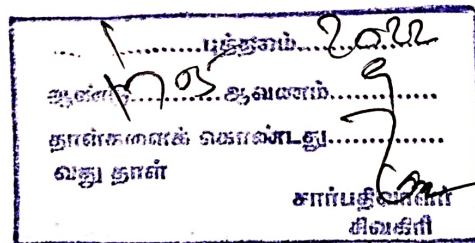 1 புத்தகம் 2022
ஆண்டு 1705 ஆவணம் 9
தாள்களைக் கொண்டது
வது தாள் 7
சார்பதிவாளர்
சிவகிரி